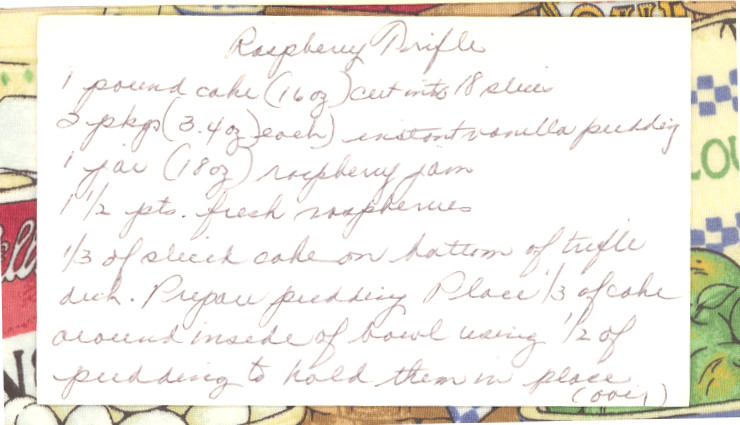 Raspberry Trifle
1 pound cake (16 oz) cut into 18 slices
2 pkgs (3.4 oz) each) instant vanilla pudding
1 jar (18 oz) raspberry jam
1 1/2 pts. fresh raspberries
1/3 of sliced cake on bottom of trifle
dish. Prepare pudding Place 1/3 of cake
around inside of bowl using 1/2 of
pudding to hold them in place
(over)